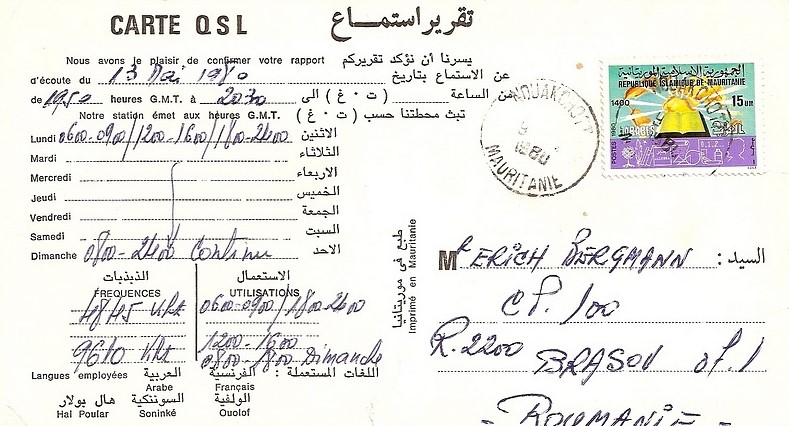 CARTE QSL تقرير استماع
Nous avons le plaisir de confirmer votre rapport يسرنا أن نؤكد تقريركم
d'écoute du 13 Mai 1980 عن الاستماع بتاريخ
de 1950 heures G.M.T. à 2030 من الساعة (ت ٠ غ) الى
Notre station émet aux heures G.M.T. تبث محطتنا حسب (ت ٠ غ)
Lundi 0600-0900/1200-1600/1800-2400 الاثنين
Mardi الثلاثاء
Mercredi الاربعاء
Jeudi الخميس
Vendredi الجمعة
Samedi السبت
Dimanche 0800-2400 Continu الاحد
الذبذبات الاستعمال
FREQUENCES UTILISATIONS
4845 KHz 0600-0900/1800-2400
9610 KHz 1200-1600
0800-1800 Dimanche
Langues employées العربية الفرنسية اللغات المستعملة :
Arabe Français
هال بولار السوننكية الولفية
Hal Poular Soninké Ouolof
طبع في موريتانيا
Imprimé en Mauritanie
NOUAKCHOTT
1980
MAURITANIE
الجمهورية الاسلامية الموريتانية
REPUBLIQUE ISLAMIQUE DE MAURITANIE
1400
15 UM
POSTES 1980
Mr ERICH BERGMANN السيد :
CP. 100
R.2200 BRASOV of. 1
- ROUMANIE -